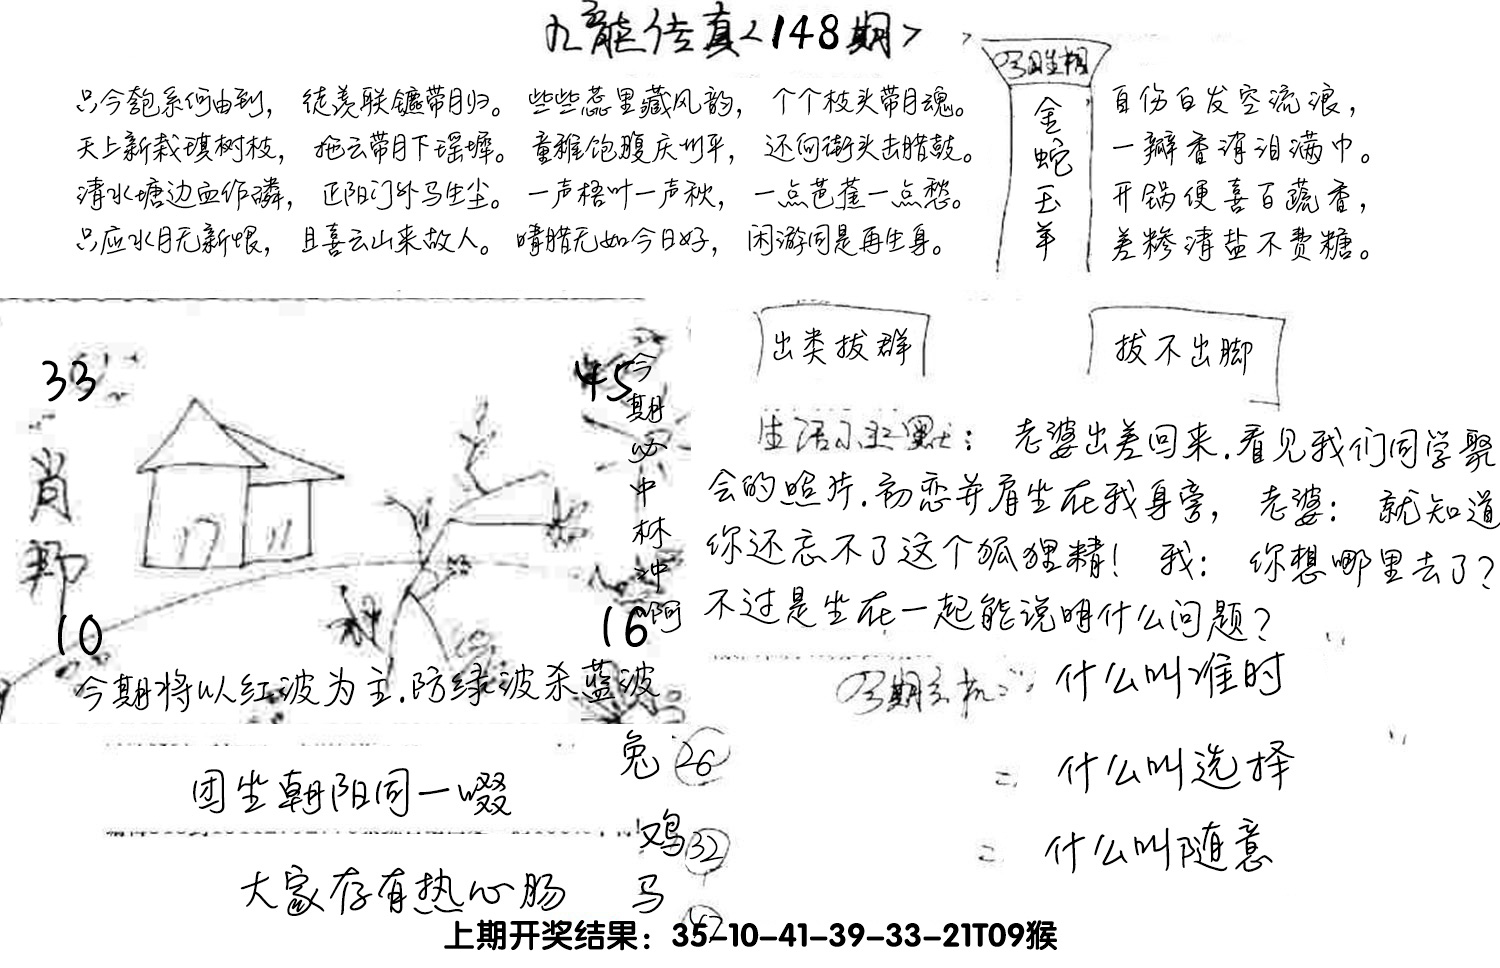 九龙传真<148期>
只今匏系何由到，徒羡联镳带月归。些些蕊里藏风韵，个个枝头带月魂。
天上新栽琪树枝，拖云带月下瑶墀。童稚饱腹庆州平，还向街头击腊鼓。
清水塘边血作磷，正阳门外马生尘。一声梧叶一声秋，一点芭蕉一点愁。
只应水月无新恨，且喜云山来故人。晴腊无如今日好，闲游同是再生身。
今日生相
金蛇玉羊
自伤白发空流浪，
一瓣香消泪满巾。
开锅便喜百蔬香，
差糁清盐不费糖。
33
45
肖
10
16
今期必中林冲啊
今期将以红波为主.防绿波杀蓝波
出类拔群
拔不出脚
生活小幽默：老婆出差回来.看见我们同学聚
会的照片.初恋并肩坐在我身旁，老婆：就知道
你还忘不了这个狐狸精！我：你想哪里去了？
不过是坐在一起能说明什么问题？
今期玄机：什么叫准时
=什么叫选择
=什么叫随意
团坐朝阳同一啜
大家存有热心肠
兔26
鸡32
马
上期开奖结果：35-10-41-39-33-21T09猴